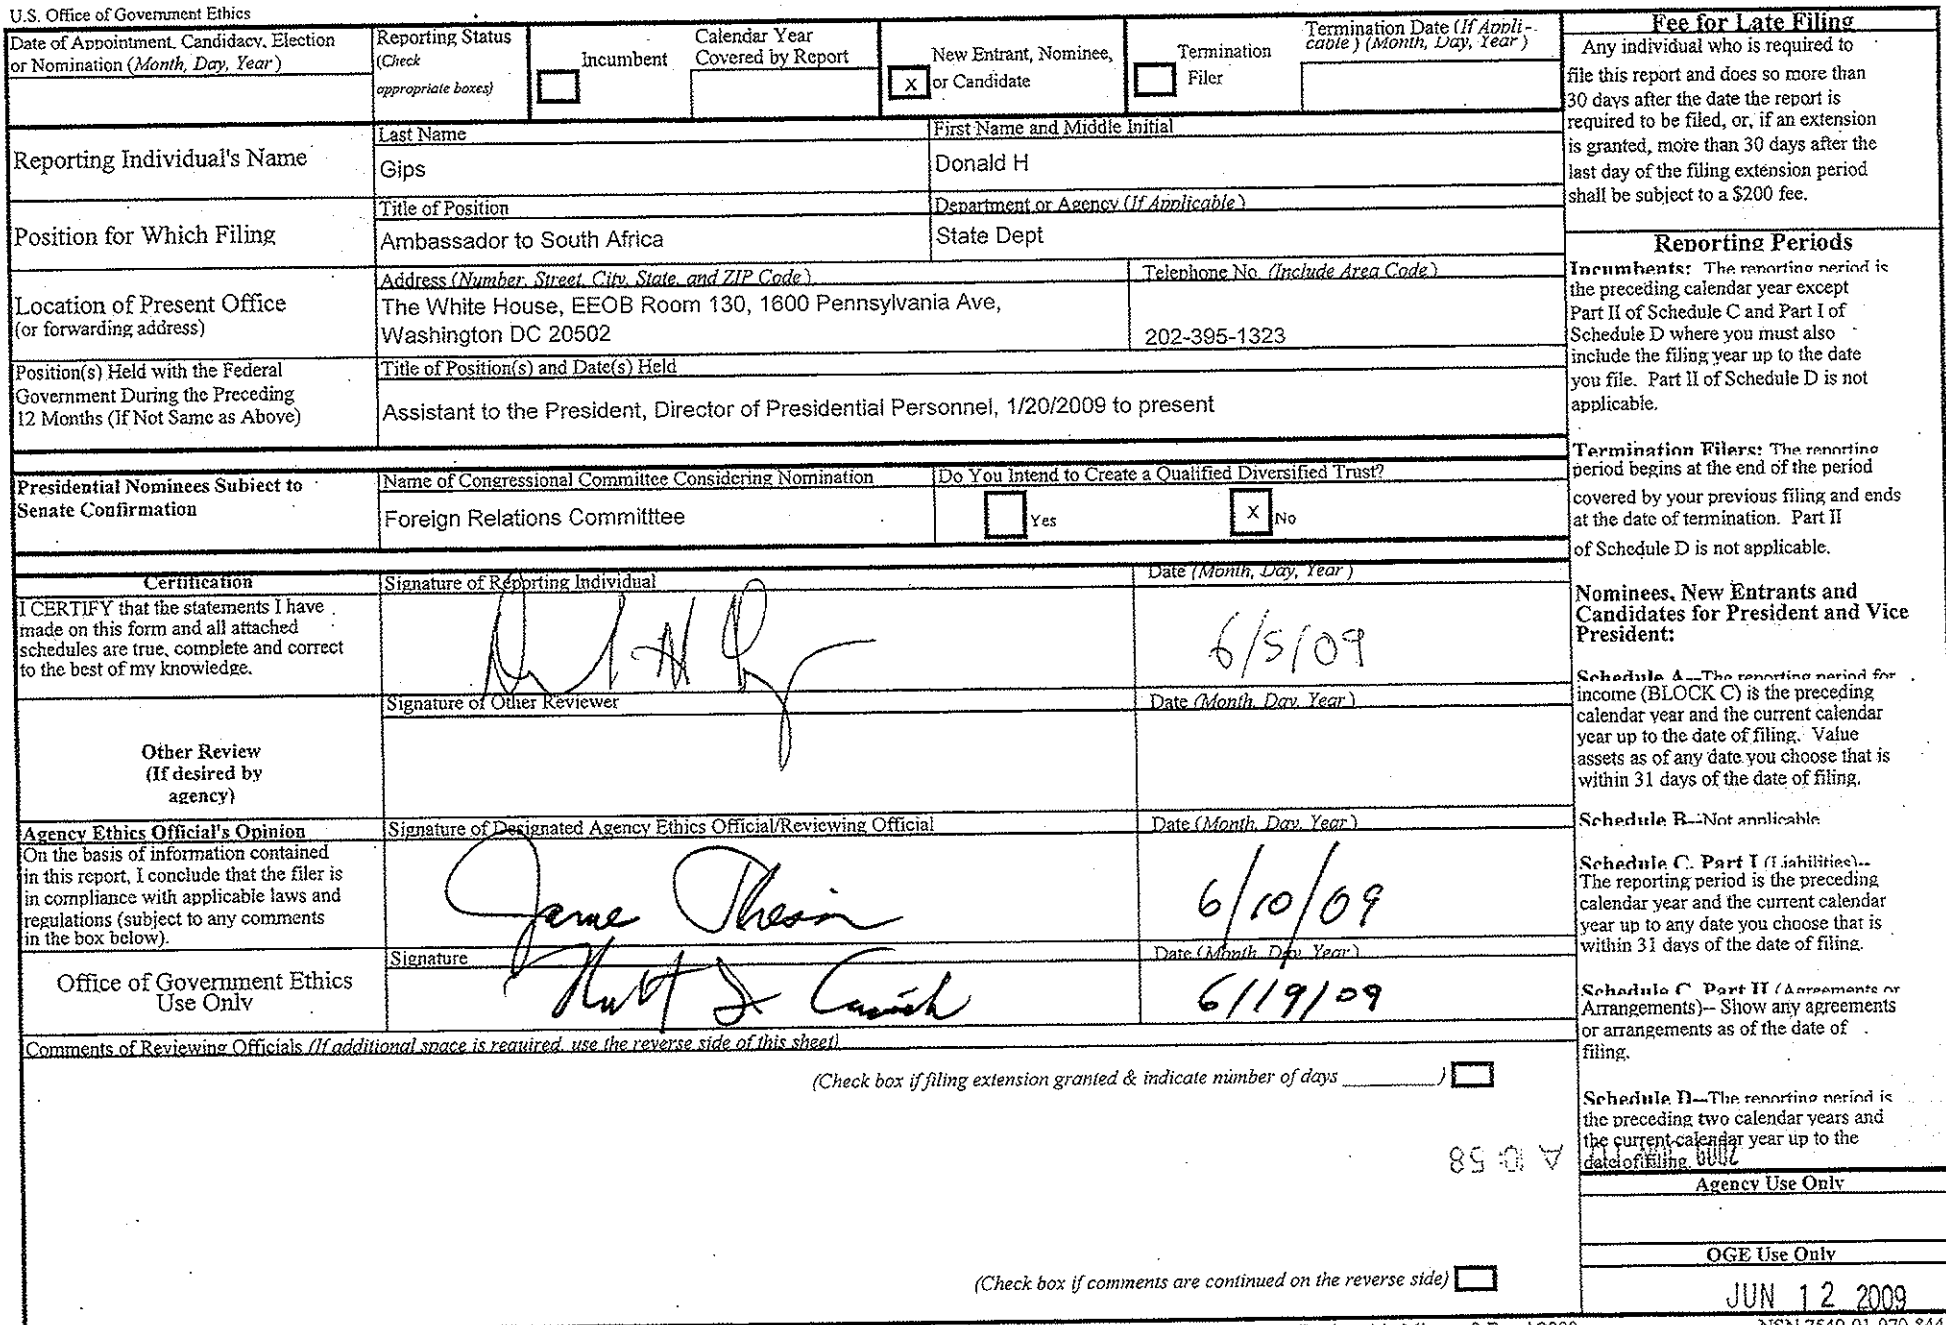 U.S. Office of Government Ethics
Date of Appointment, Candidacy, Election
or Nomination (Month, Day, Year)
Reporting Status
(Check
appropriate boxes)
Incumbent
Calendar Year
Covered by Report
x
New Entrant, Nominee,
or Candidate
Termination
Filer
Termination Date (If Appli-
cable) (Month, Day, Year)
Reporting Individual's Name
Last Name
Gips
First Name and Middle Initial
Donald H
Position for Which Filing
Title of Position
Ambassador to South Africa
Department or Agency (If Applicable)
State Dept
Location of Present Office
(or forwarding address)
Address (Number, Street, City, State, and ZIP Code)
The White House, EEOB Room 130, 1600 Pennsylvania Ave,
Washington DC 20502
Telephone No. (Include Area Code)
202-395-1323
Position(s) Held with the Federal
Government During the Preceding
12 Months (If Not Same as Above)
Title of Position(s) and Date(s) Held
Assistant to the President, Director of Presidential Personnel, 1/20/2009 to present
Presidential Nominees Subject to
Senate Confirmation
Name of Congressional Committee Considering Nomination
Foreign Relations Committtee
Do You Intend to Create a Qualified Diversified Trust?
Yes
x No
Certification
I CERTIFY that the statements I have
made on this form and all attached
schedules are true, complete and correct
to the best of my knowledge.
Signature of Reporting Individual
Date (Month, Day, Year)
6/5/09
Other Review
(If desired by
agency)
Signature of Other Reviewer
Date (Month, Day, Year)
Agency Ethics Official's Opinion
On the basis of information contained
in this report, I conclude that the filer is
in compliance with applicable laws and
regulations (subject to any comments
in the box below).
Signature of Designated Agency Ethics Official/Reviewing Official
Date (Month, Day, Year)
6/10/09
Office of Government Ethics
Use Only
Signature
Date (Month, Day, Year)
6/19/09
Comments of Reviewing Officials (If additional space is required, use the reverse side of this sheet)
(Check box if filing extension granted & indicate number of days ________)
A 10:58
(Check box if comments are continued on the reverse side)
Fee for Late Filing
Any individual who is required to
file this report and does so more than
30 days after the date the report is
required to be filed, or, if an extension
is granted, more than 30 days after the
last day of the filing extension period
shall be subject to a $200 fee.
Reporting Periods
Incumbents: The reporting period is
the preceding calendar year except
Part II of Schedule C and Part I of
Schedule D where you must also
include the filing year up to the date
you file. Part II of Schedule D is not
applicable.
Termination Filers: The reporting
period begins at the end of the period
covered by your previous filing and ends
at the date of termination. Part II
of Schedule D is not applicable.
Nominees, New Entrants and
Candidates for President and Vice
President:
Schedule A--The reporting period for
income (BLOCK C) is the preceding
calendar year and the current calendar
year up to the date of filing. Value
assets as of any date you choose that is
within 31 days of the date of filing.
Schedule B--Not applicable
Schedule C, Part I (Liabilities)--
The reporting period is the preceding
calendar year and the current calendar
year up to any date you choose that is
within 31 days of the date of filing.
Schedule C, Part II (Agreements or
Arrangements)-- Show any agreements
or arrangements as of the date of
filing.
Schedule D--The reporting period is
the preceding two calendar years and
the current calendar year up to the
date of filing.
Agency Use Only
OGE Use Only
JUN 12 2009